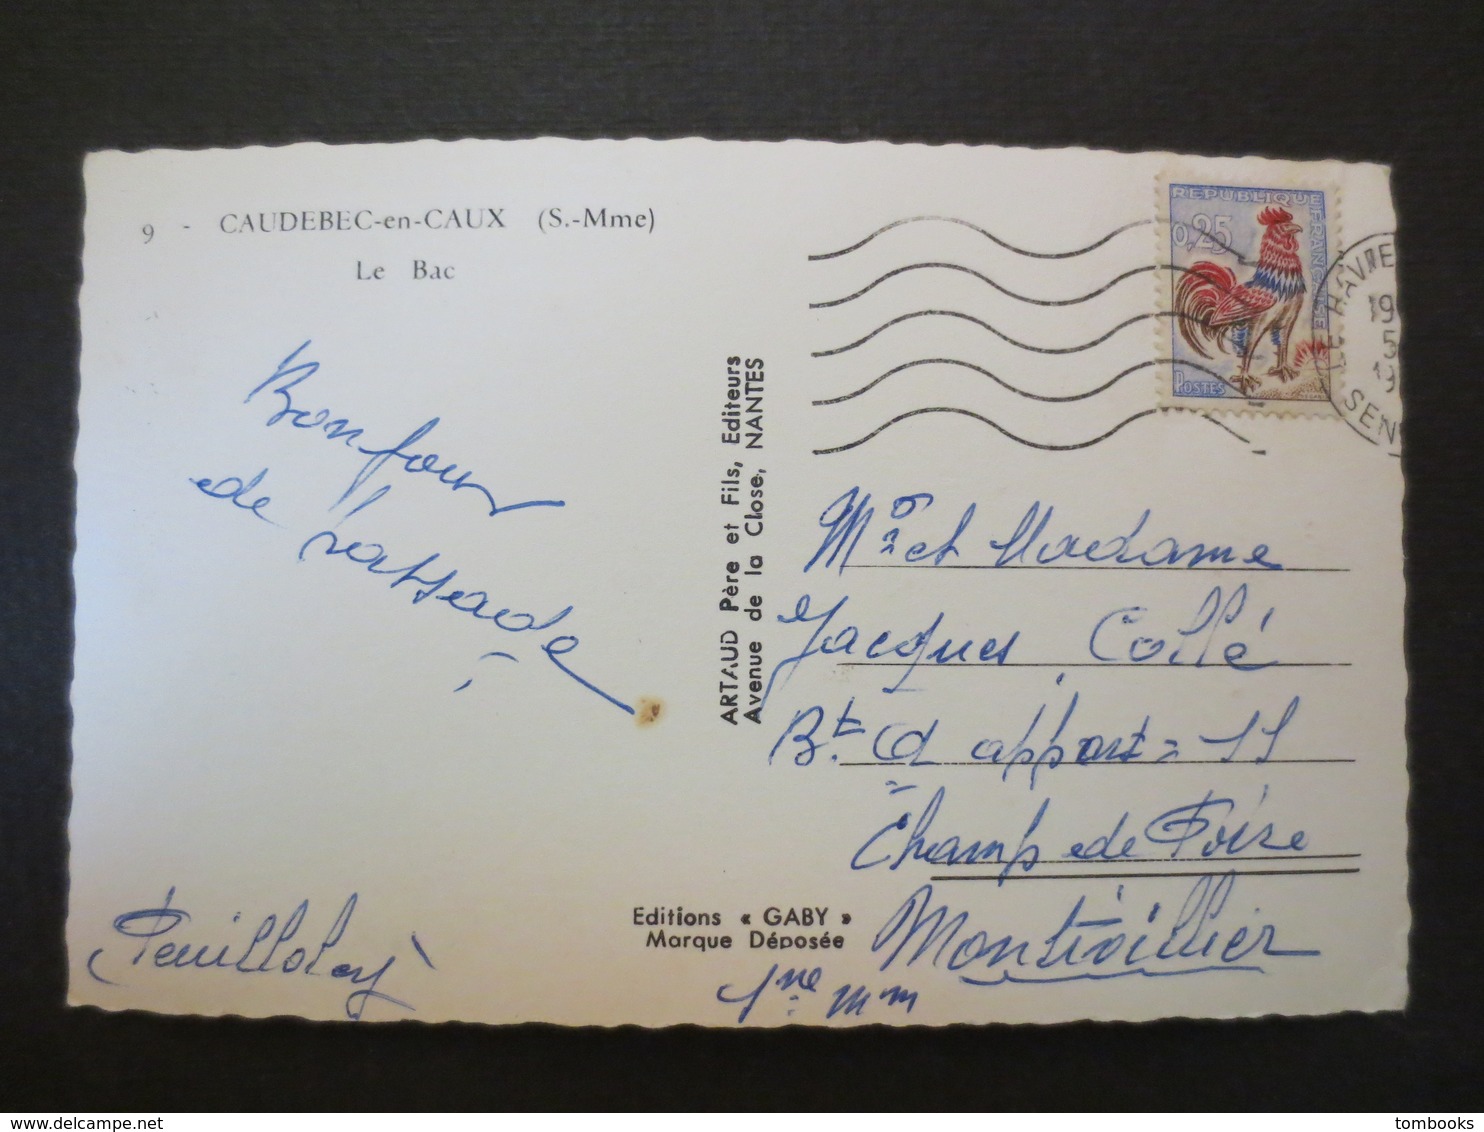 9 - CAUDEBEC-en-CAUX (S.-Mme)
Le Bac
Bonjour
de
Feuilloley
ARTAUD Père et Fils, Editeurs
Avenue de la Close, NANTES
Editions « GABY »
Marque Déposée
REPUBLIQUE FRANÇAISE
0,25
POSTES
LE HAVRE
19
5
19
M.r et Madame
Jacques Collé
Bt. appart = 11
Champ de Foire
Montivillier
Sne mme
tombooks